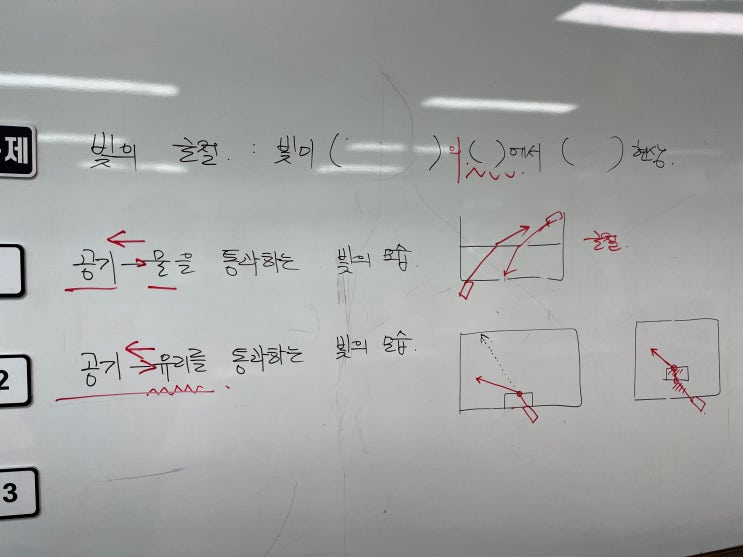 제
빛의 굴절 : 빛이 (          )의 (   )에서 (     ) 현상.
공기 → 물을 통과하는 빛의 모습
굴절.
공기 → 유리를 통과하는 빛의 모습.
2
3